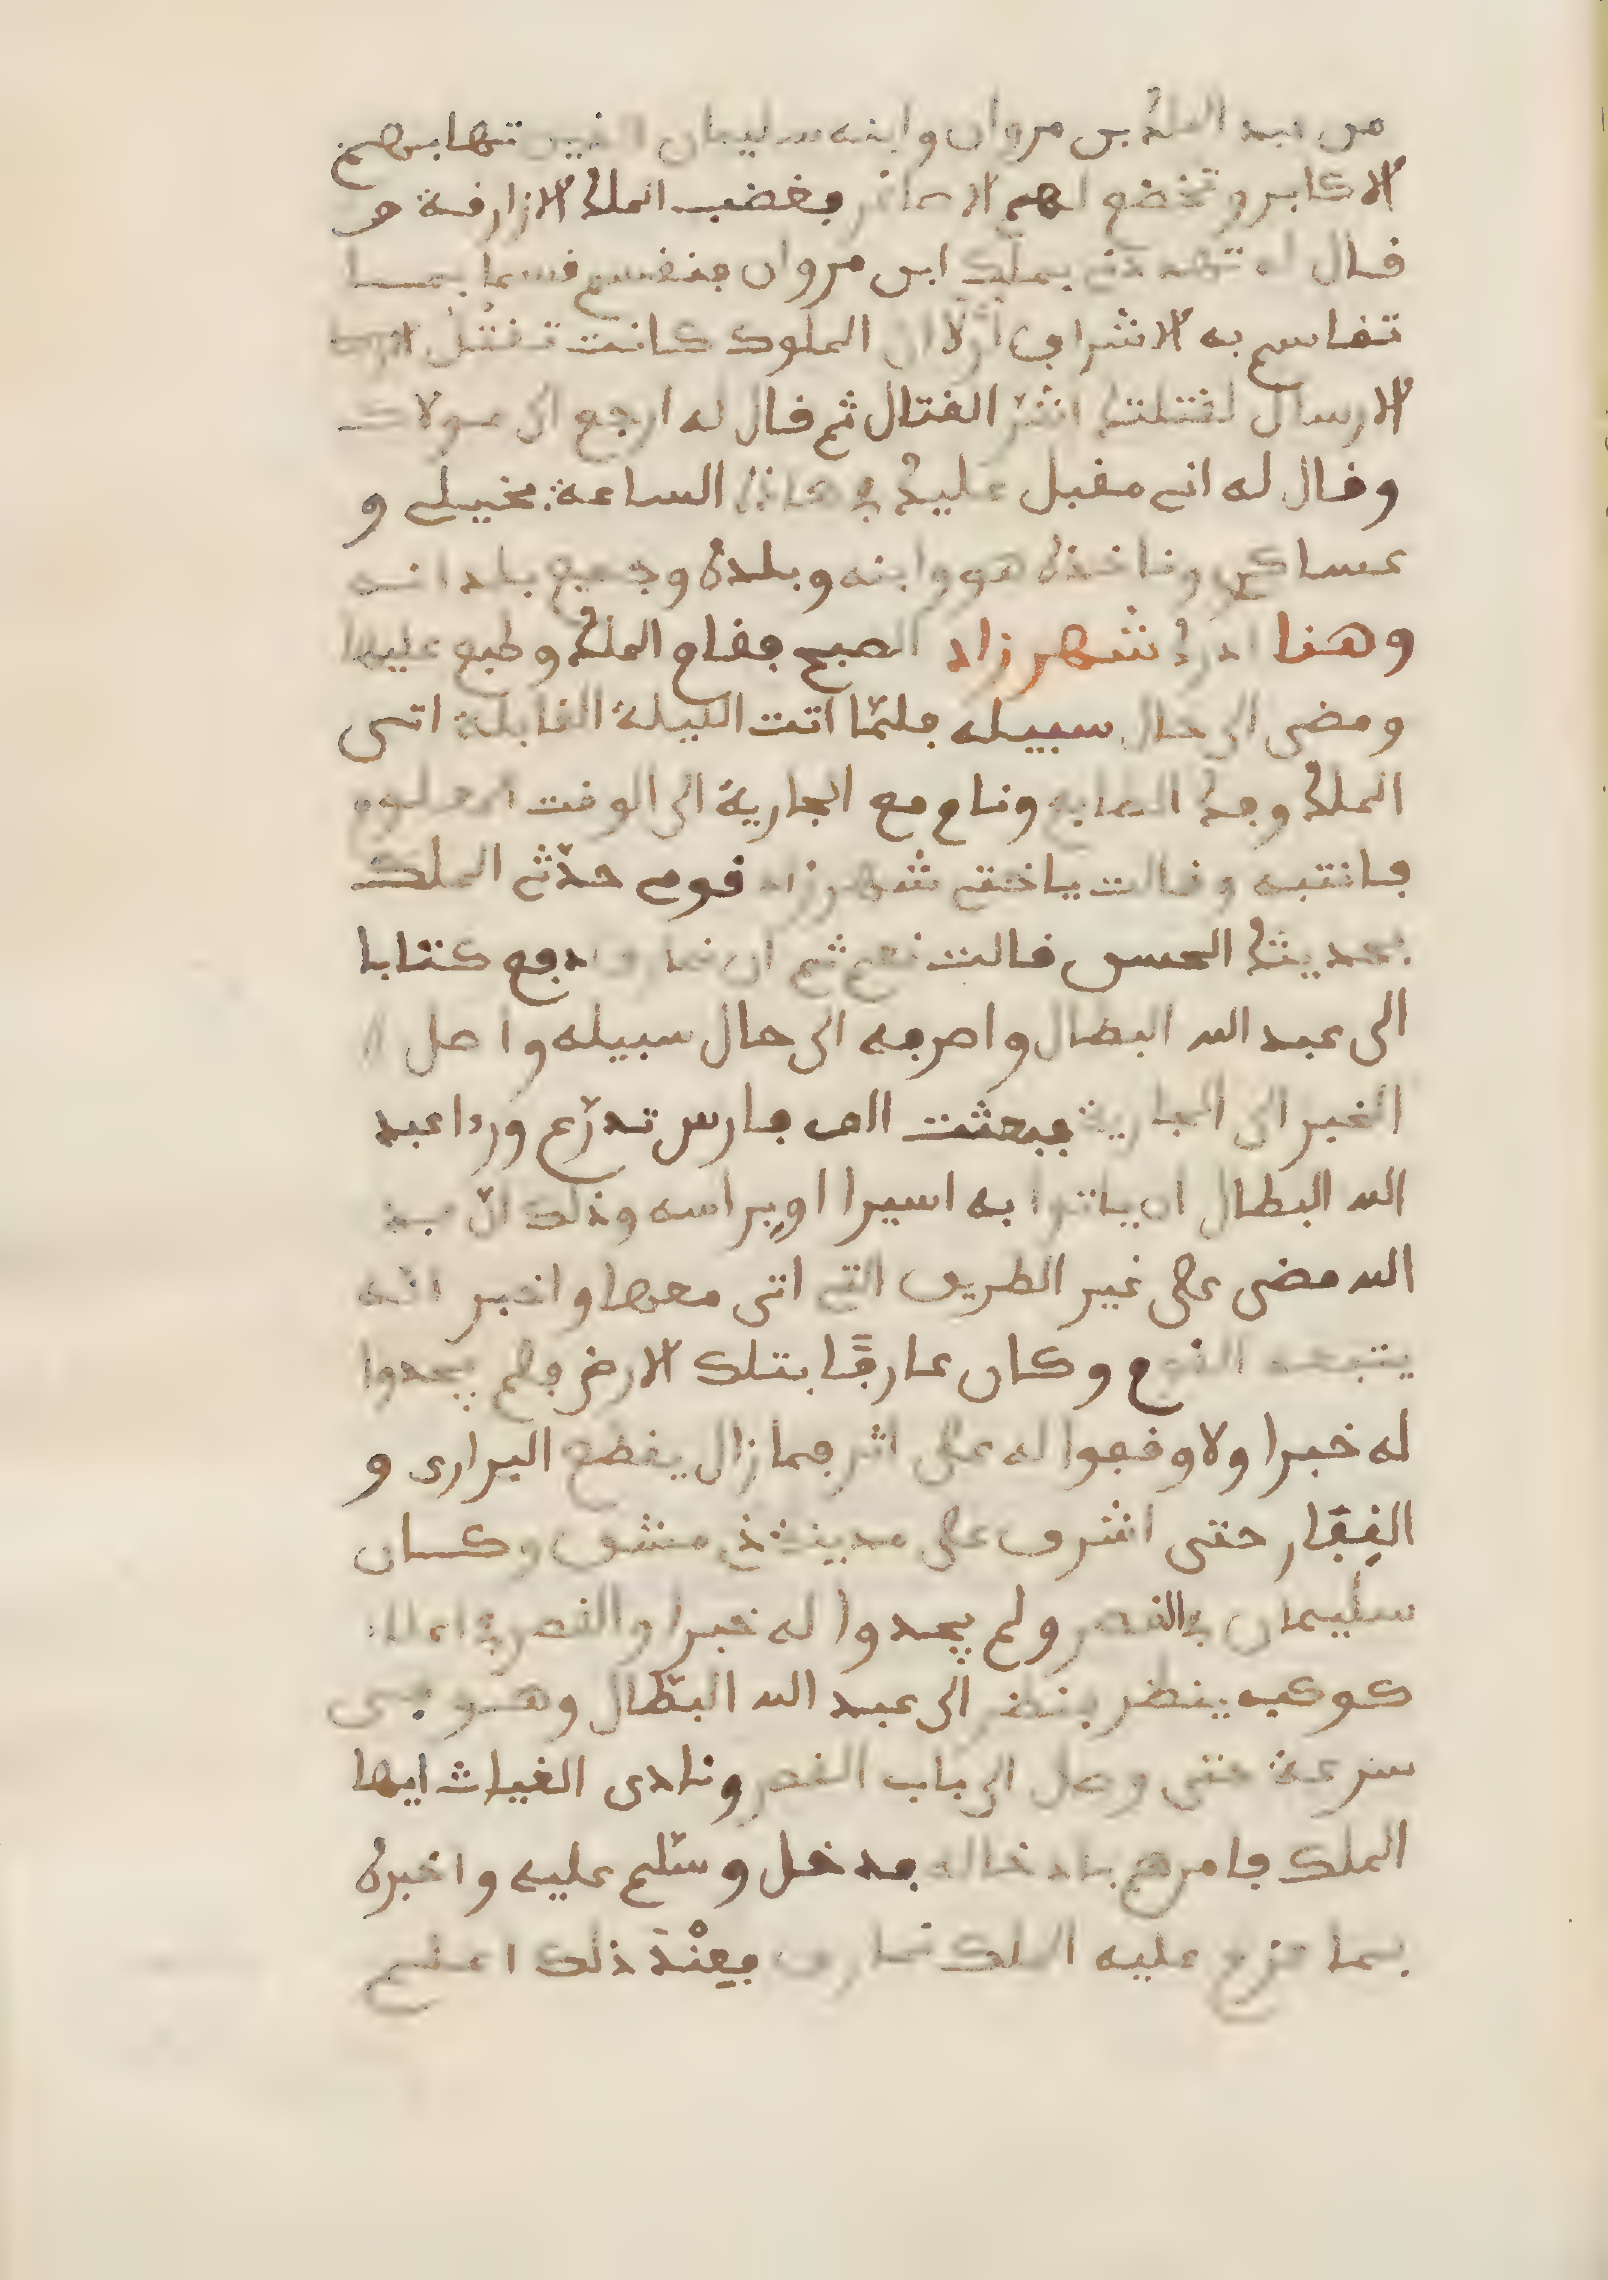 من عبد الملك بن مروان وابنه سليمان الذين تهابهم
الاكابر وتخضع لهم الاصاغر فغضب الملك الازارقة و
قال له تهددني بملك ابن مروان فنقسم قسما بما
تقاسم به الاشراف لولا ان الملوك كانت تقتل
الارسال لقتلتك اشر القتال ثم قال له ارجع الى مولاك
وقال له اني مقبل عليك في هاذه الساعة بخيلي و
عساكري وناخذه هو وابنه وبلده وجميع بلدانه
وهنا ادرك شهرزاد الصبح فقام الملك وطبع عليها
ومضى الى حال سبيله فلمّا اتت الليلة القابلة اتى
الملك وفك الطابع ونام مع الجارية الى الوقت المعلوم
فانتبه وقالت ياختي شهرزاد قومي حدّثي الملك
بحديثك الحسن قالت نعم ثم ان دفع كتابا
الى عبد الله البطال واصرفه الى حال سبيله واصل
الخبر الى الجارية فبعثت الف فارس تدرّع وردا عبد
الله البطال ان ياتوا به اسيرا او براسه وذلك انّ عبد
الله مضى على غير الطريق التي اتى معها واخبر انه
يتبعه القوم وكان عارفا بتلك الارض ولم يجدوا
له خبرا ولا وقفوا له على اثر فما زال يقطع البراري و
القِفَار حتى اشرف على مدينة دمشق وكان
سليمان في القصر ولم يجدوا له خبرا والقصر في
كوكبه ينظر ينظر الى عبد الله البطّال وهو في
سرعة حتى وصل الى باب القصر ونادى الغياث ايها
الملك فامرهم بادخاله فدخل وسلّم عليه واخبره
بما عزم عليه الملك فعِنْدَ ذلك اعلم